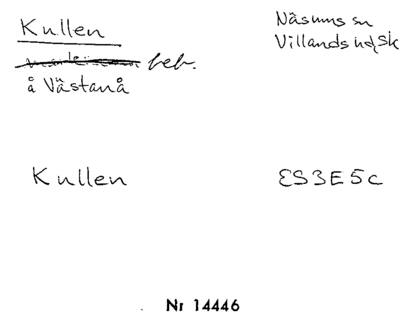 Kullen
Näsums sn
Villands hd, Sk
beb.
å Västanå
Kullen
ES3E5c
Nr 14446